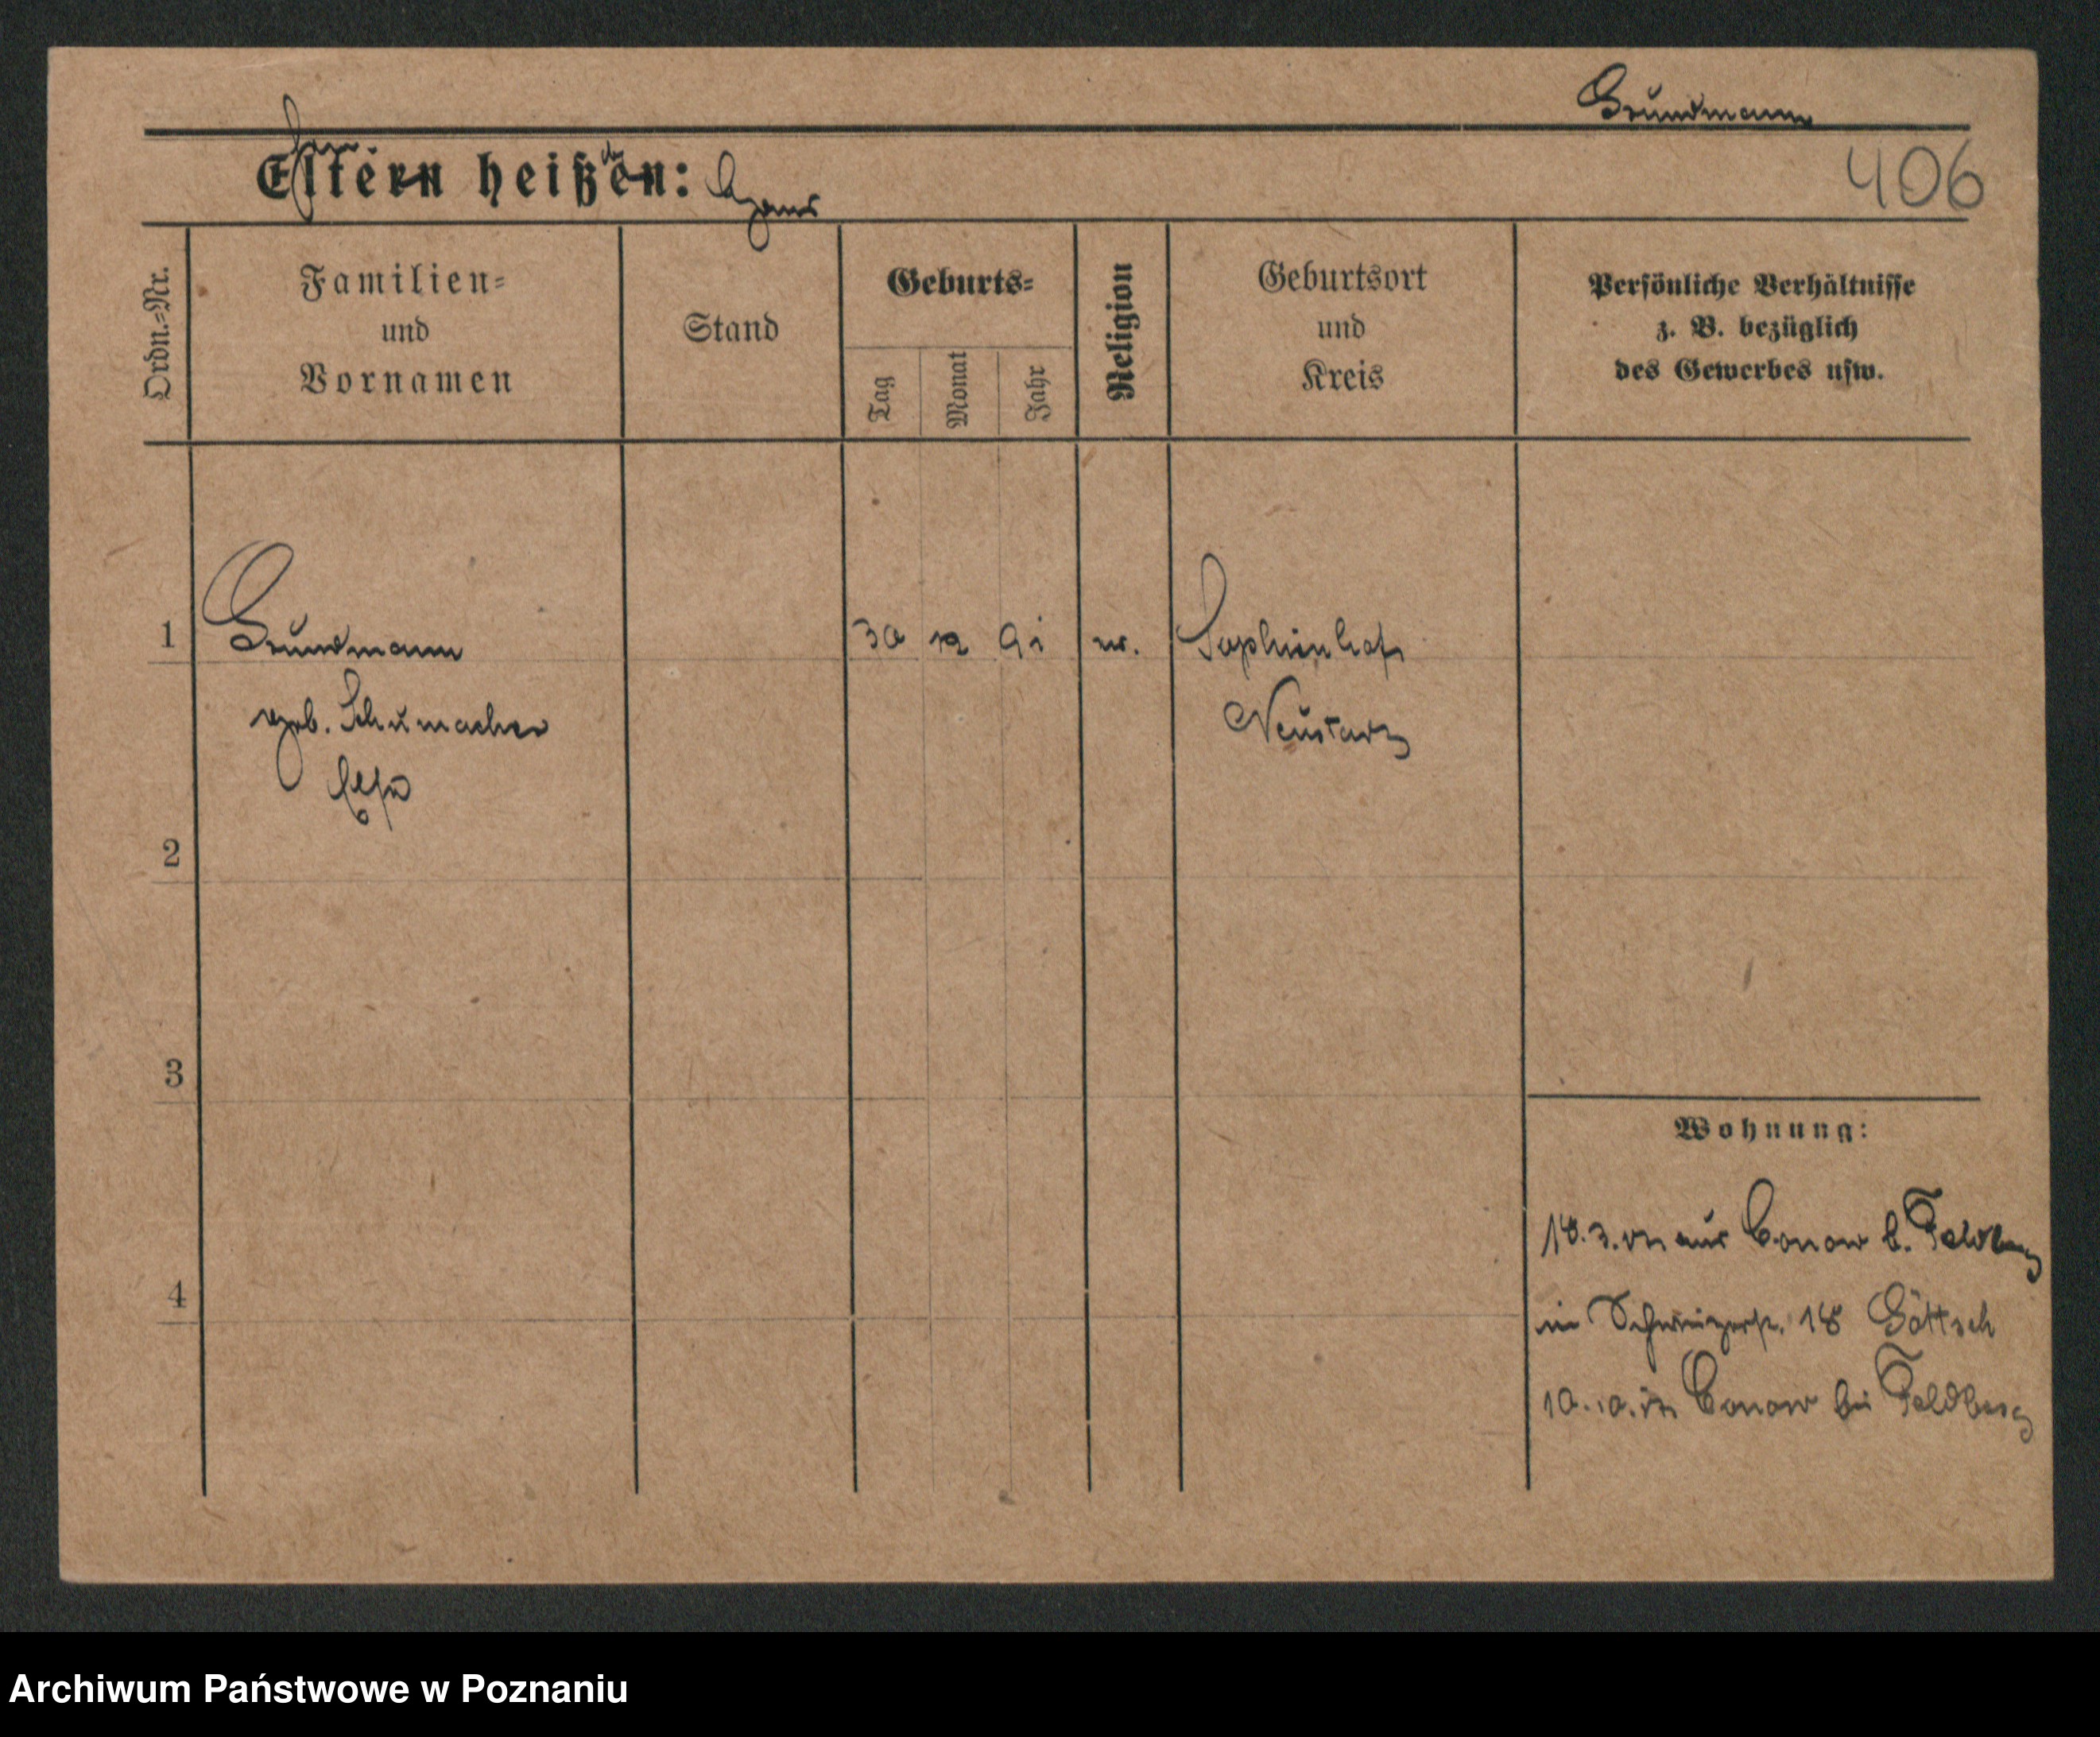 Grundmann
406
Eltern heißen:
Ordn.=Nr.
Familien=
und
Vornamen
Stand
Geburts=
Tag
Monat
Jahr
Religion
Geburtsort
und
Kreis
Persönliche Verhältnisse
z. B. bezüglich
des Gewerbes usw.
1 Grundmann 30 12 91 Sophienhof
geb. Schumacher
Neustadt
2
3
Wohnung:
18.3. aus Conow b. Feldberg
4
in 18 Göttsch
10. Conow bei Feldberg
Archiwum Państwowe w Poznaniu